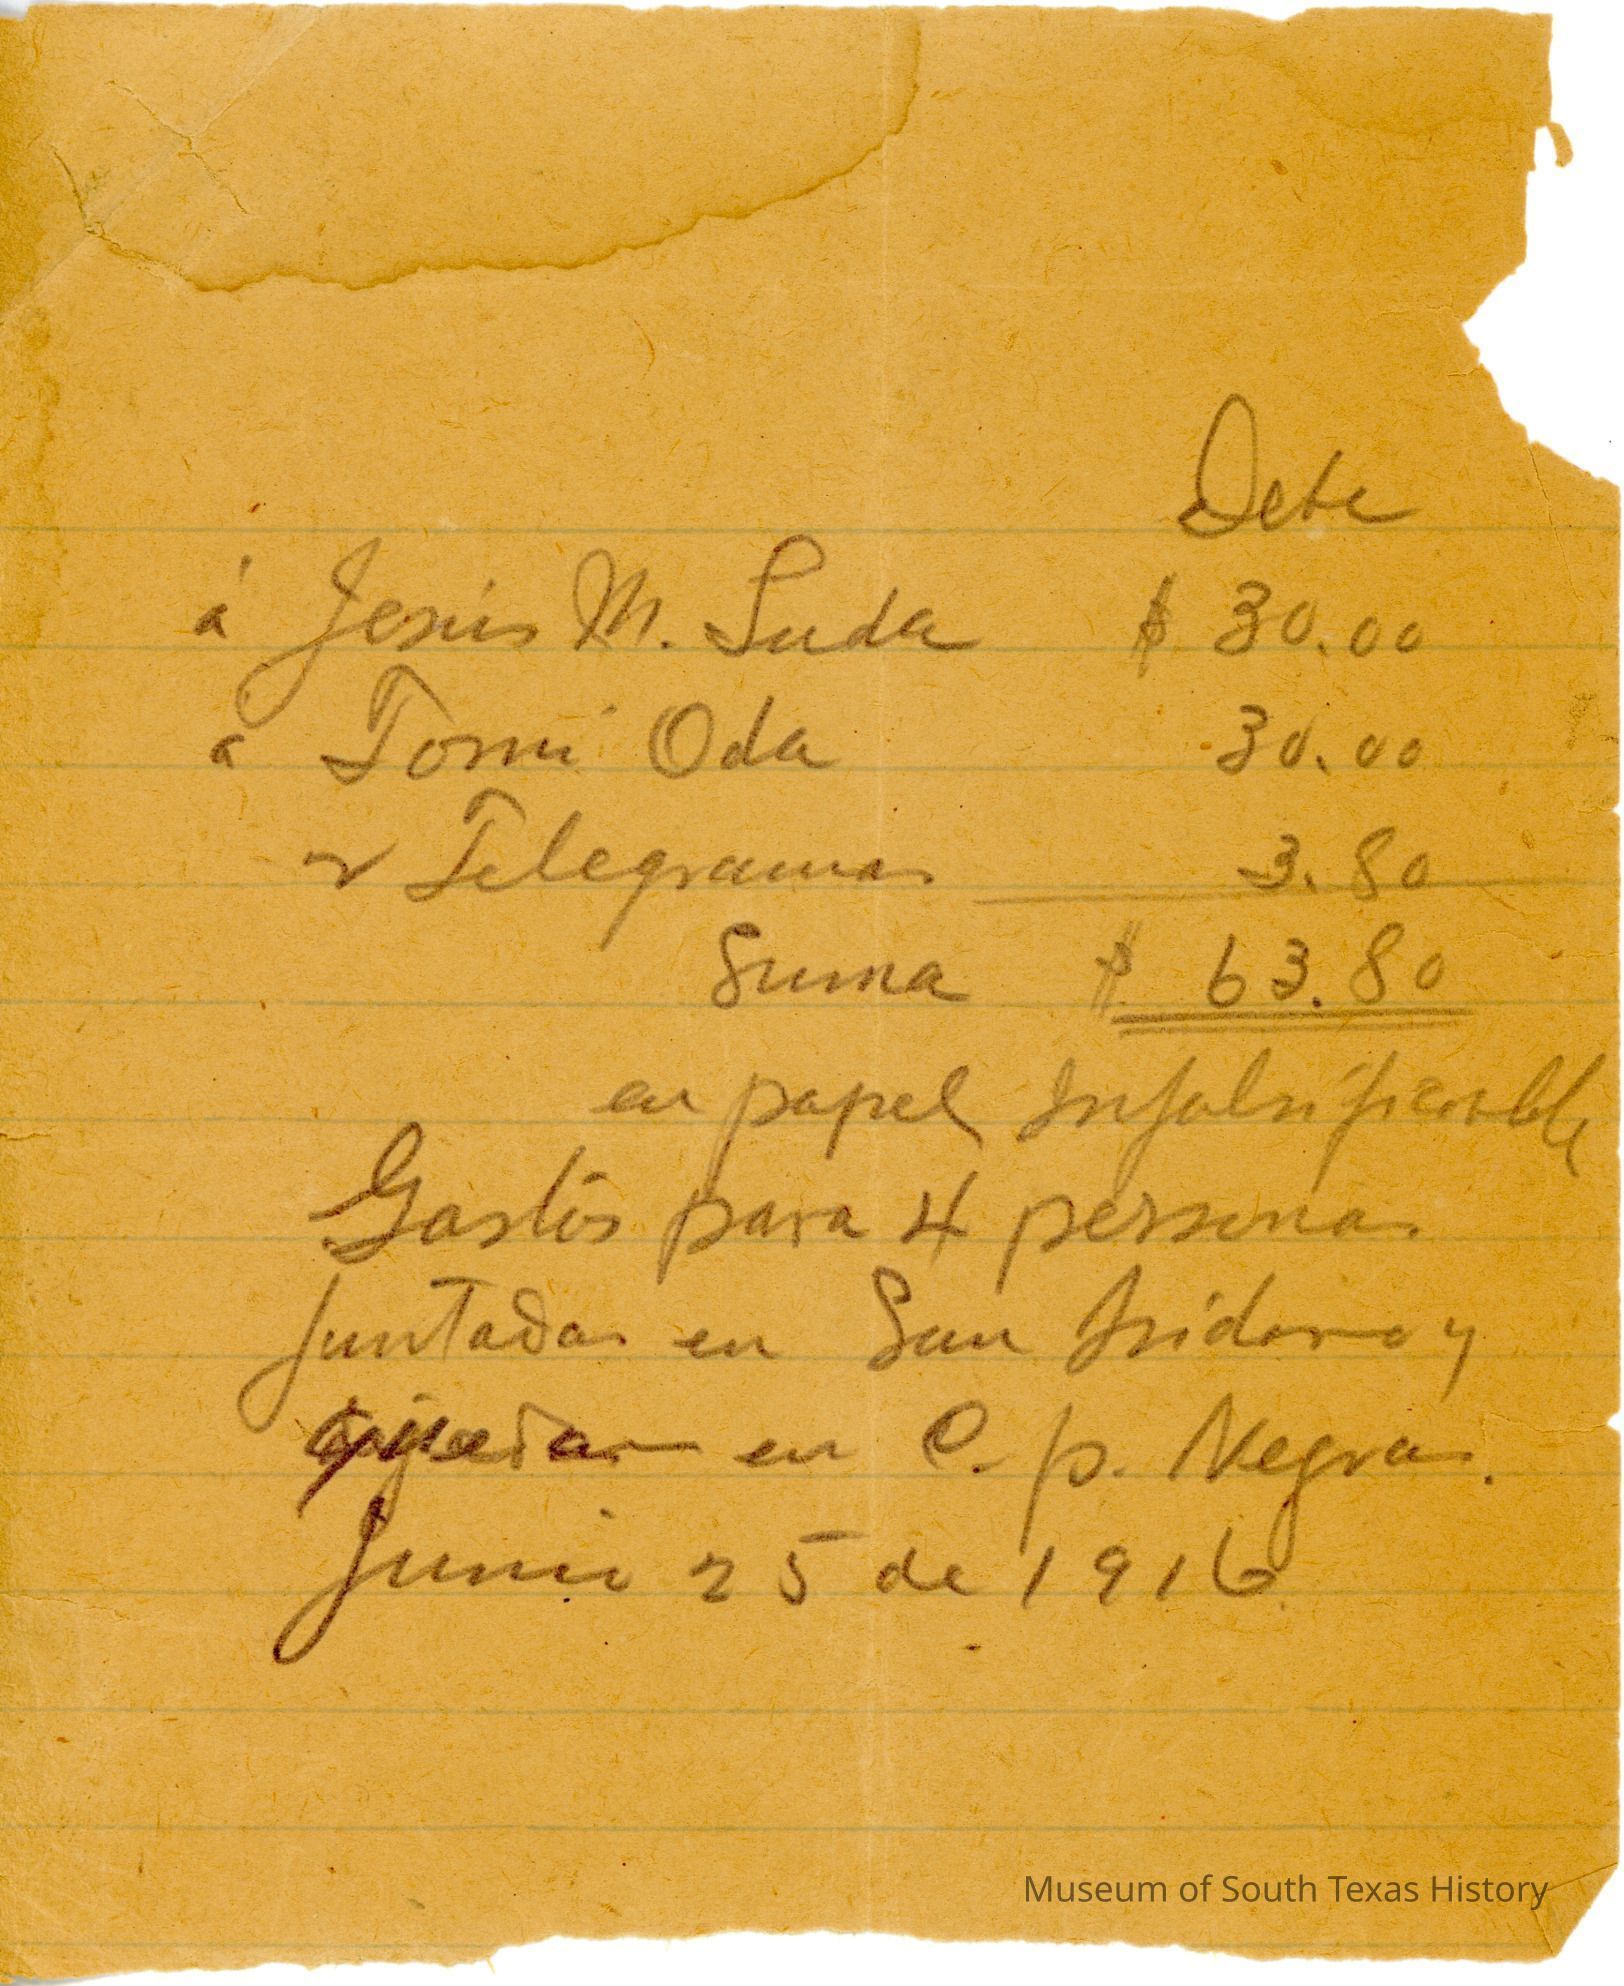 Debe
á Jesús M. Suda $ 30.00
á Tomi Oda 30.00
2 Telegramas 3.80
Suma $ 63.80
en papel Infalsificable
Gastos para 4 personas
juntadas en San Isidoro y
quedar en C. p. Negras.
Junio 25 de 1916
Museum of South Texas History